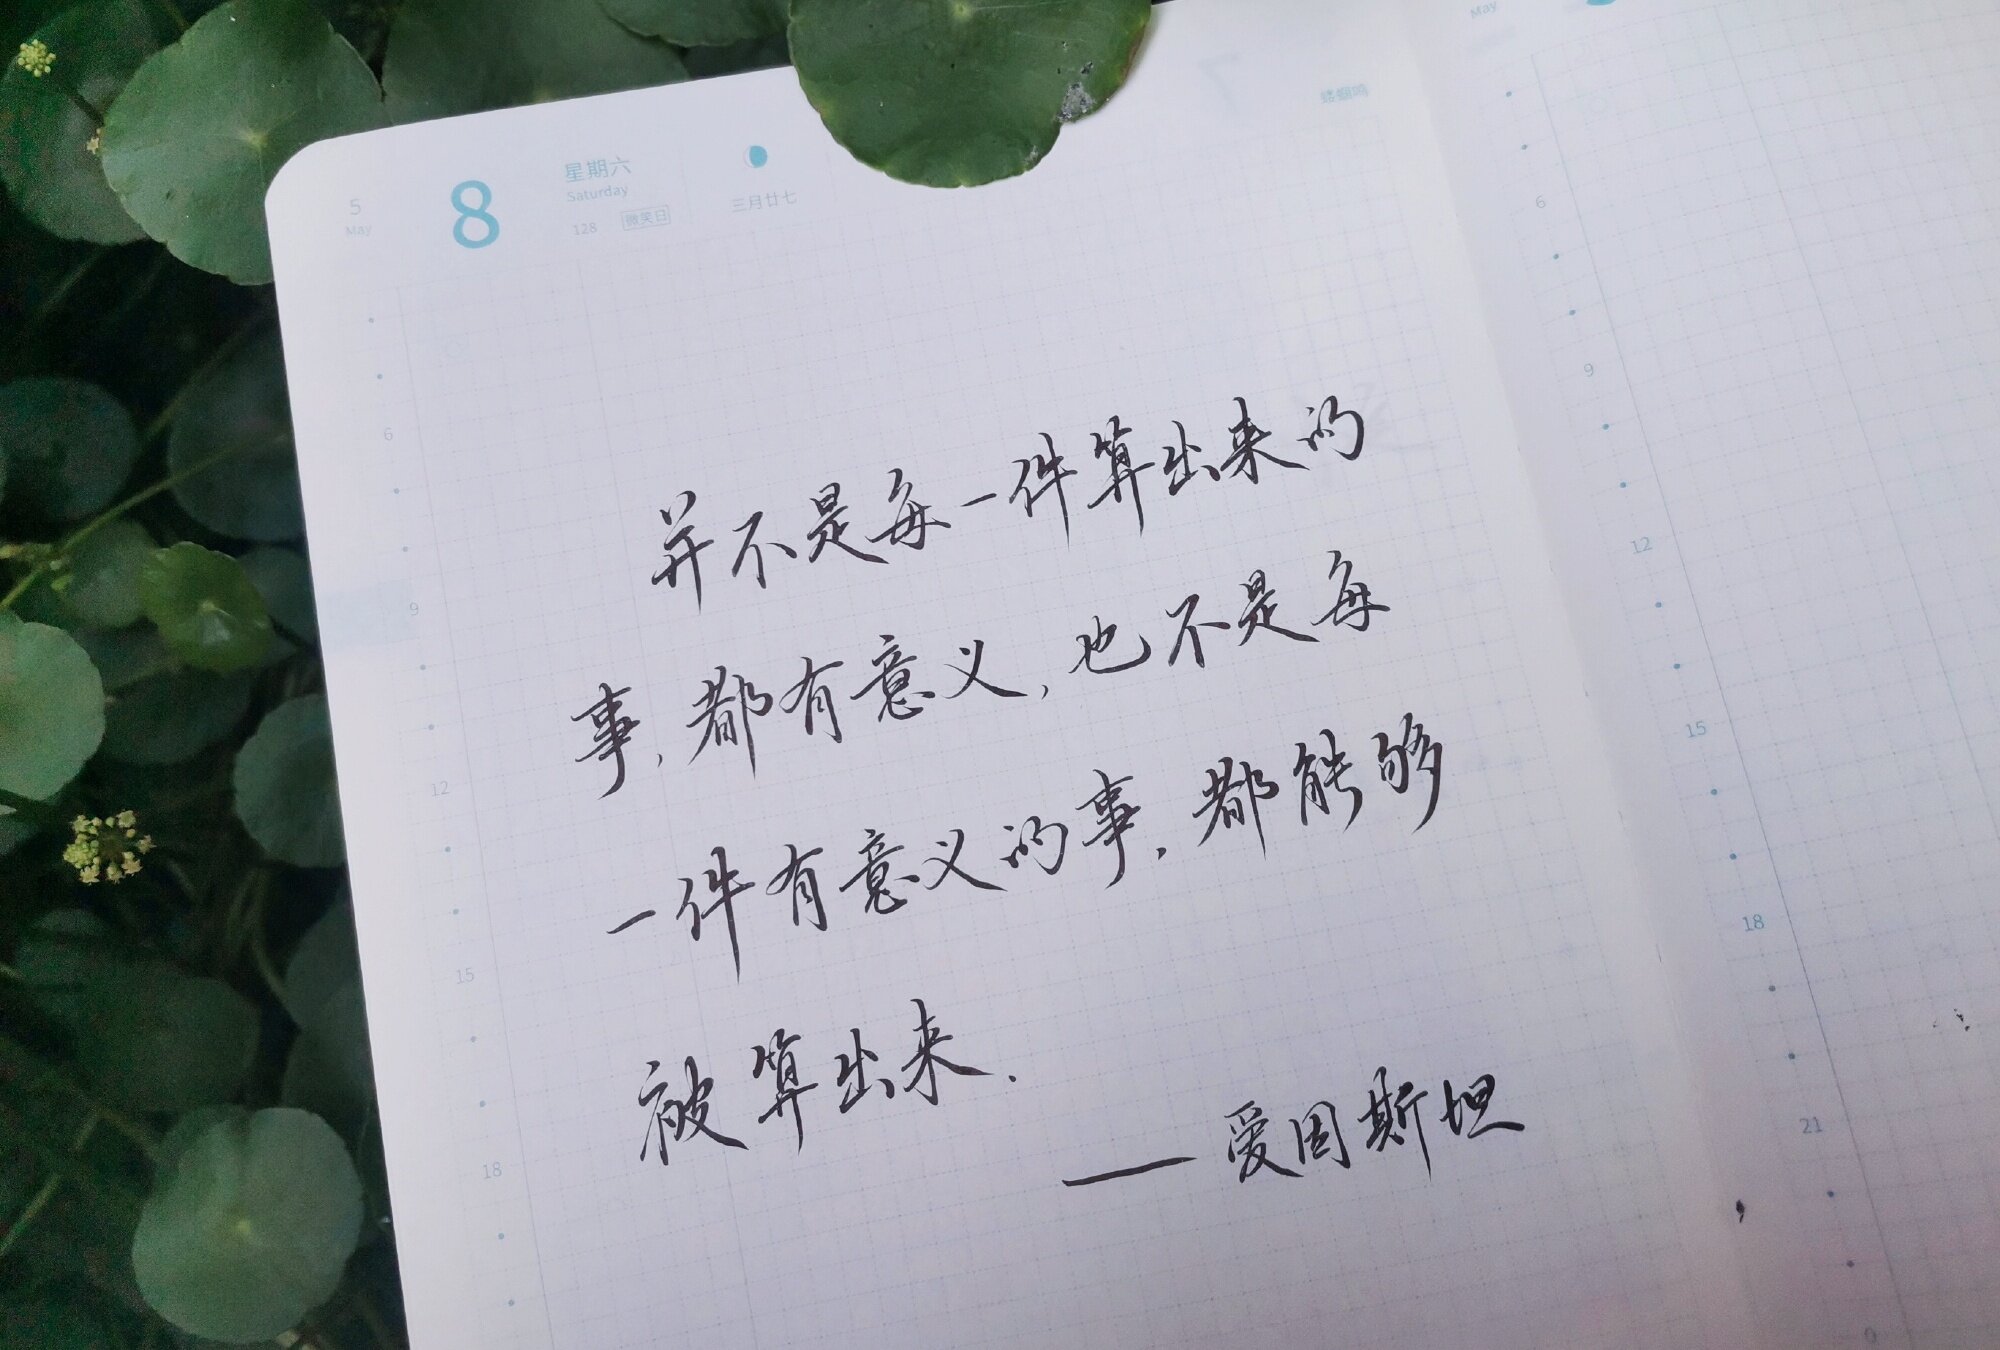 5
May
8
星期六
Saturday
128 微笑日
三月廿七
蝼蝈鸣
May
并不是每一件算出来的
事，都有意义，也不是每
一件有意义的事，都能够
被算出来.
——爱因斯坦
6
9
12
15
18
6
9
12
15
18
21